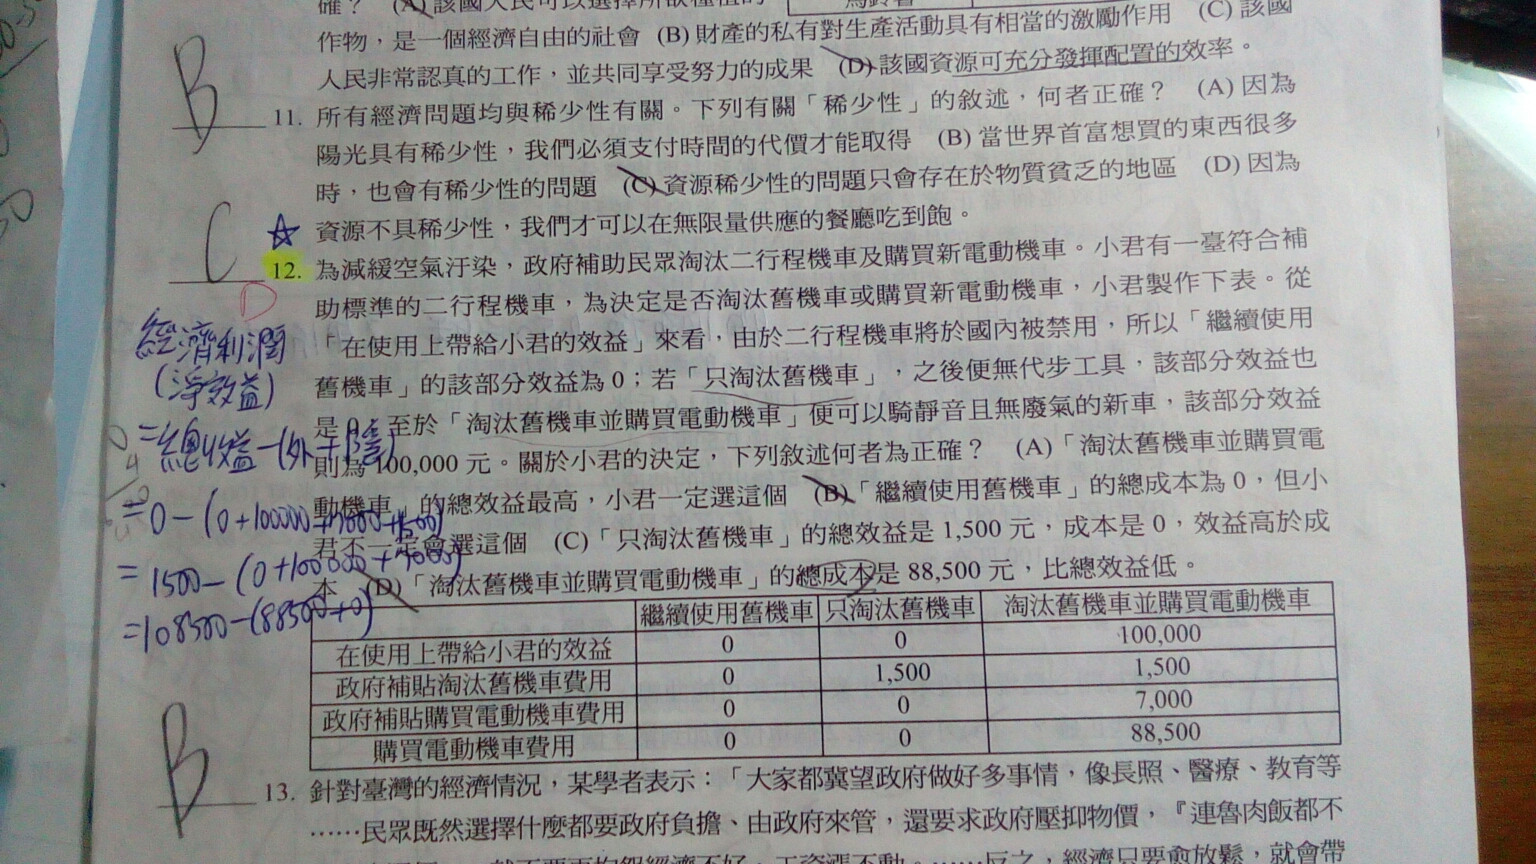 確？ (A) 該國人民可以選擇所欲種植的
作物，是一個經濟自由的社會 (B) 財產的私有對生產活動具有相當的激勵作用 (C) 該國
人民非常認真的工作，並共同享受努力的成果 (D) 該國資源可充分發揮配置的效率。
B
11. 所有經濟問題均與稀少性有關。下列有關「稀少性」的敘述，何者正確？ (A) 因為
陽光具有稀少性，我們必須支付時間的代價才能取得 (B) 當世界首富想買的東西很多
時，也會有稀少性的問題 (C) 資源稀少性的問題只會存在於物質貧乏的地區 (D) 因為
資源不具稀少性，我們才可以在無限量供應的餐廳吃到飽。
C
D
12. 為減緩空氣汙染，政府補助民眾淘汰二行程機車及購買新電動機車。小君有一臺符合補
助標準的二行程機車，為決定是否淘汰舊機車或購買新電動機車，小君製作下表。從
「在使用上帶給小君的效益」來看，由於二行程機車將於國內被禁用，所以「繼續使用
舊機車」的該部分效益為 0；若「只淘汰舊機車」，之後便無代步工具，該部分效益也
是 0。至於「淘汰舊機車並購買電動機車」便可以騎靜音且無廢氣的新車，該部分效益
則為 100,000 元。關於小君的決定，下列敘述何者為正確？ (A)「淘汰舊機車並購買電
動機車」的總效益最高，小君一定選這個 (B)「繼續使用舊機車」的總成本為 0，但小
君不一定會選這個 (C)「只淘汰舊機車」的總效益是 1,500 元，成本是 0，效益高於成
本 (D)「淘汰舊機車並購買電動機車」的總成本是 88,500 元，比總效益低。
經濟利潤
(淨效益)
=總收益-(外+隱)
=0-(0+100000+7000+1500)
=1500-(0+100000+7000)
=108500-(88500+0)
繼續使用舊機車 只淘汰舊機車 淘汰舊機車並購買電動機車
在使用上帶給小君的效益 0 0 100,000
政府補貼淘汰舊機車費用 0 1,500 1,500
政府補貼購買電動機車費用 0 0 7,000
購買電動機車費用 0 0 88,500
B
13. 針對臺灣的經濟情況，某學者表示：「大家都冀望政府做好多事情，像長照、醫療、教育等
……民眾既然選擇什麼都要政府負擔、由政府來管，還要求政府壓抑物價，『連魯肉飯都不